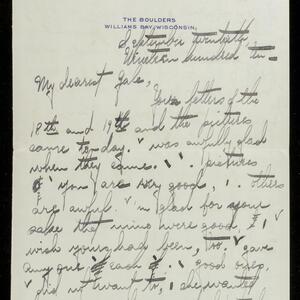 THE BOULDERS
WILLIAMS BAY, WISCONSIN
September twentieth,
Nineteen hundred ten
My dearest Gale,
Your letters of the
18th and 19th and the pictures
came to-day. I was awfully glad
when they came. pictures
of you are very good, others
are awful. I'm glad for your
sake the nine were good, & I
wish yours had been, too. I gave
any one each good ones,
I did not want to, she wanted